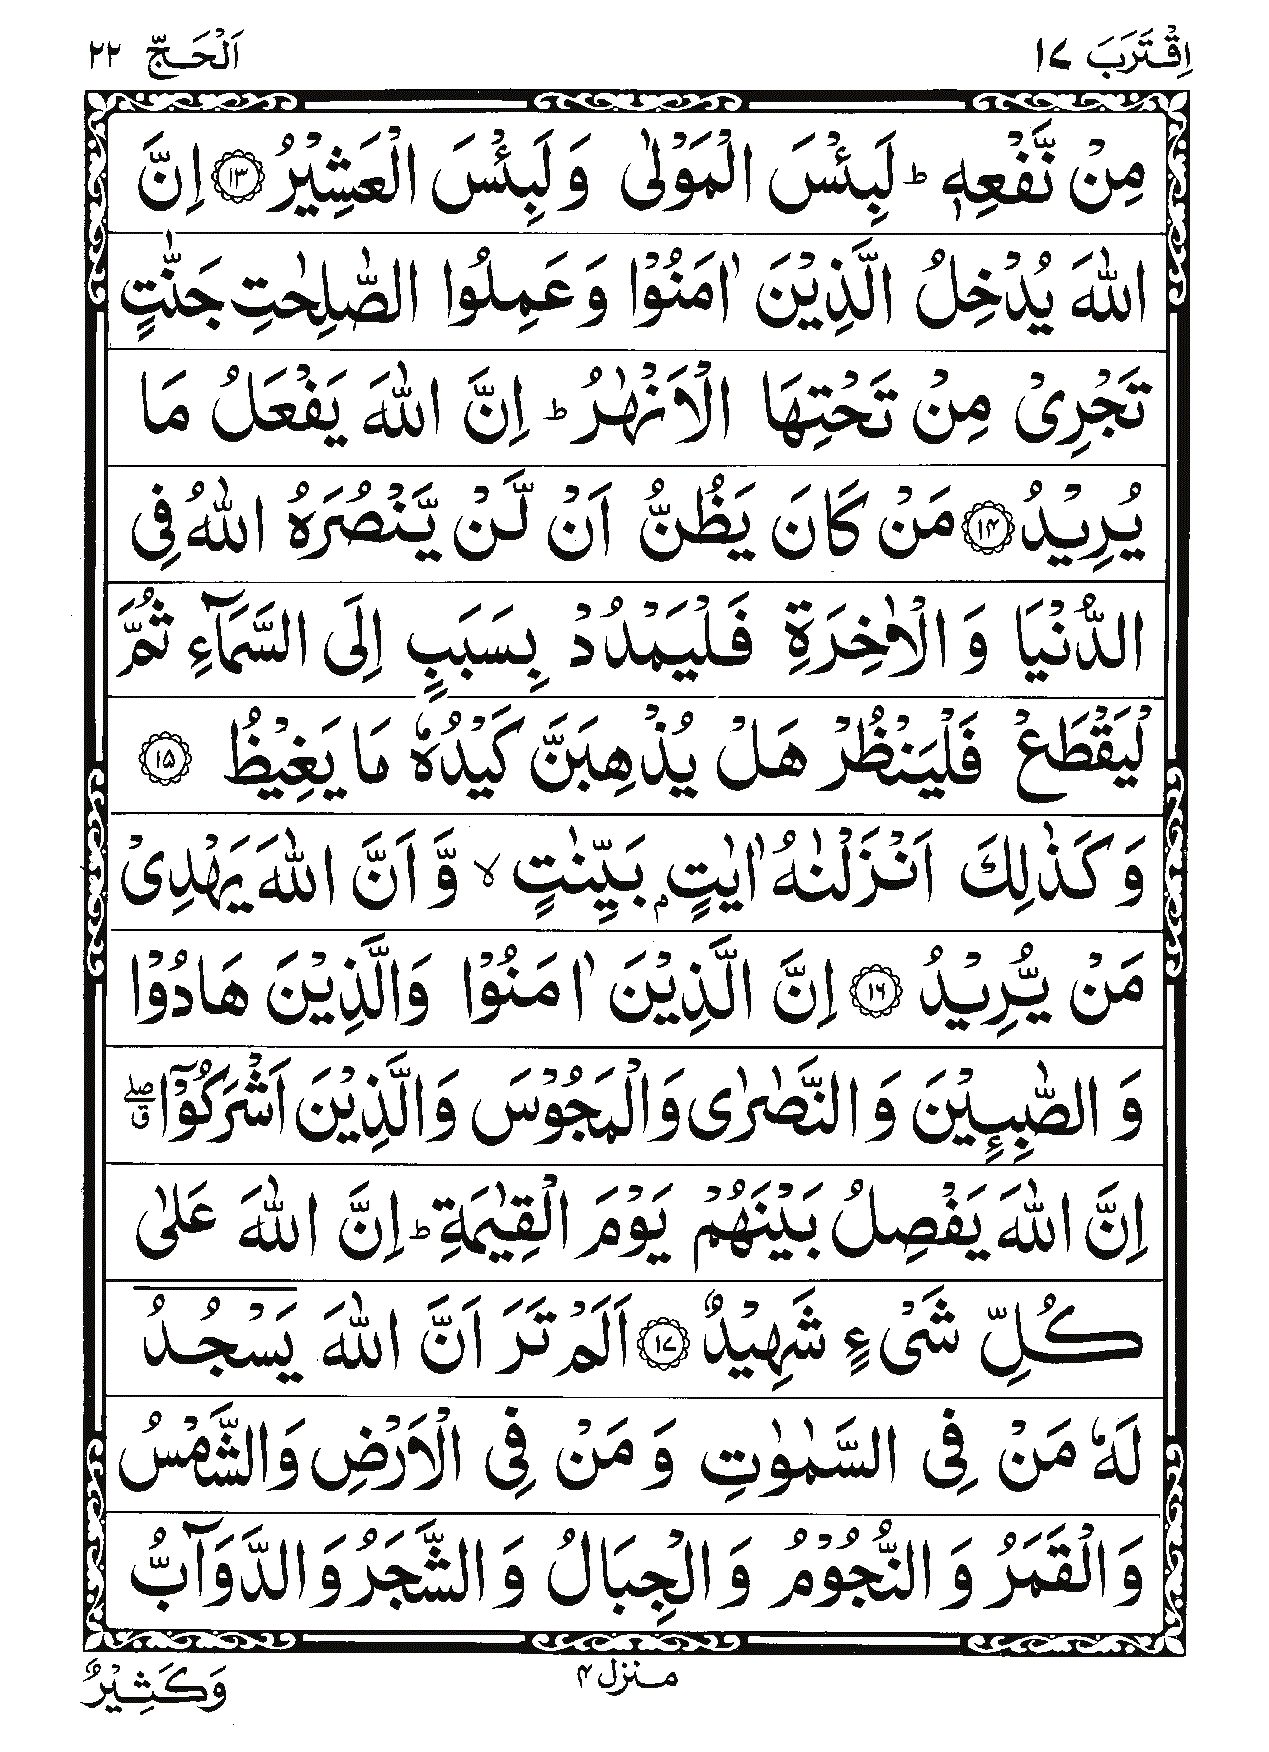 اِقْتَرَبَ ١٧
اَلْحَجّ ٢٢
مِنْ نَّفْعِهٖ ؕ لَبِئْسَ الْمَوْلٰی وَ لَبِئْسَ الْعَشِیْرُ ﴿۱۳﴾ اِنَّ
اللّٰهَ یُدْخِلُ الَّذِیْنَ اٰمَنُوْا وَ عَمِلُوا الصّٰلِحٰتِ جَنّٰتٍ
تَجْرِیْ مِنْ تَحْتِهَا الْاَنْهٰرُ ؕ اِنَّ اللّٰهَ یَفْعَلُ مَا
یُرِیْدُ ﴿۱۴﴾ مَنْ كَانَ یَظُنُّ اَنْ لَّنْ یَّنْصُرَهُ اللّٰهُ فِی
الدُّنْیَا وَ الْاٰخِرَةِ فَلْیَمْدُدْ بِسَبَبٍ اِلَی السَّمَآءِ ثُمَّ
لْیَقْطَعْ فَلْیَنْظُرْ هَلْ یُذْهِبَنَّ كَیْدُهٗ مَا یَغِیْظُ ﴿۱۵﴾
وَ كَذٰلِكَ اَنْزَلْنٰهُ اٰیٰتٍۭ بَیِّنٰتٍ ۙ وَّ اَنَّ اللّٰهَ یَهْدِیْ
مَنْ یُّرِیْدُ ﴿۱۶﴾ اِنَّ الَّذِیْنَ اٰمَنُوْا وَالَّذِیْنَ هَادُوْا
وَ الصّٰبِـِٕیْنَ وَ النَّصٰرٰی وَالْمَجُوْسَ وَالَّذِیْنَ اَشْرَكُوْۤا ۖۗ
اِنَّ اللّٰهَ یَفْصِلُ بَیْنَهُمْ یَوْمَ الْقِیٰمَةِ ؕ اِنَّ اللّٰهَ عَلٰی
كُلِّ شَیْءٍ شَهِیْدٌ ﴿۱۷﴾ اَلَمْ تَرَ اَنَّ اللّٰهَ یَسْجُدُ
لَهٗ مَنْ فِی السَّمٰوٰتِ وَ مَنْ فِی الْاَرْضِ وَالشَّمْسُ
وَالْقَمَرُ وَ النُّجُوْمُ وَ الْجِبَالُ وَ الشَّجَرُ وَالدَّوَآبُّ
منزل ۴
وَكَثِیْرٌ